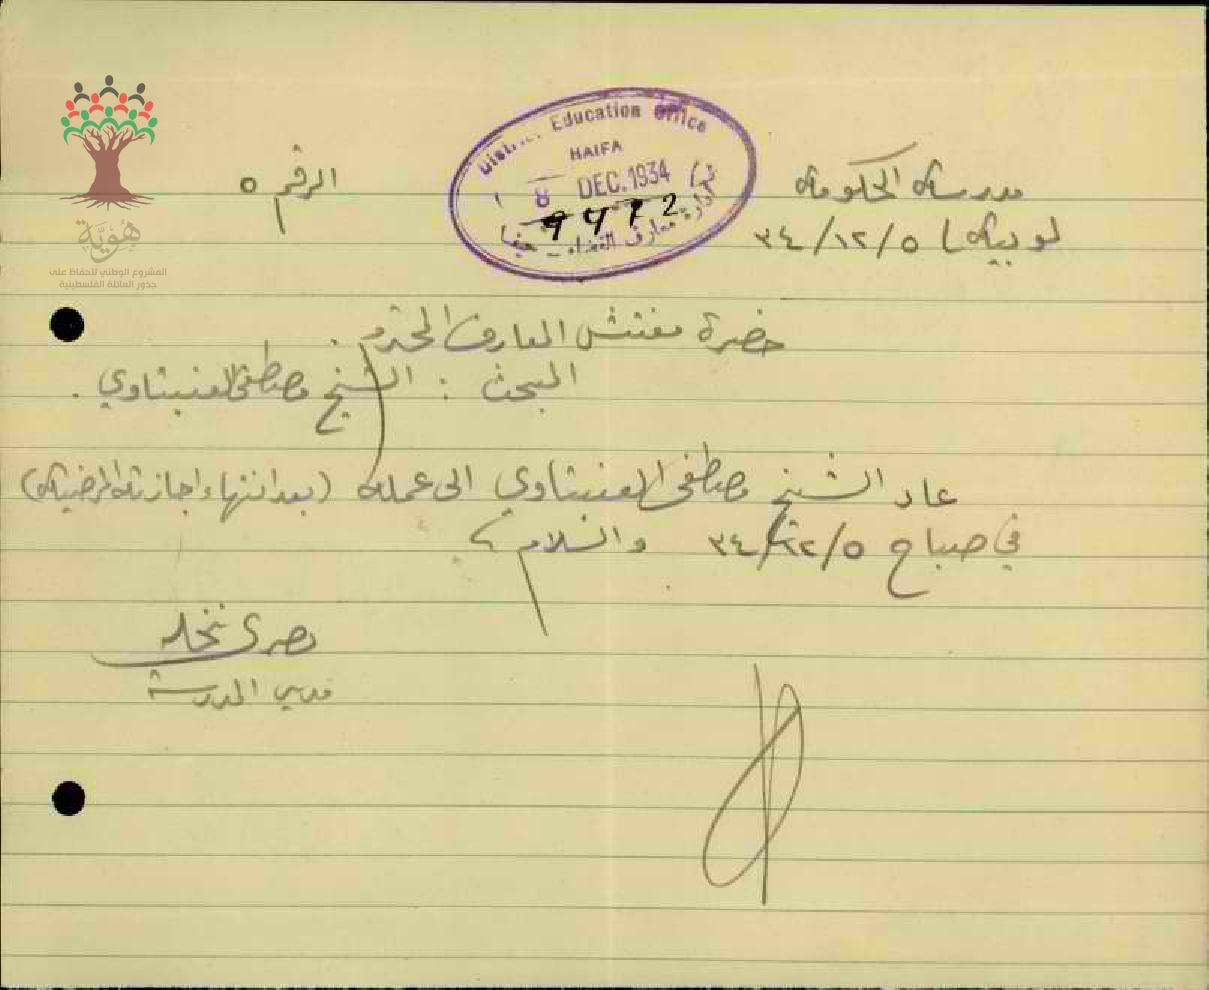 مدرسة الحكومة
لوبية / ٥/١٢/٣٤
الرقم ٥
District Education Office
HAIFA
8 DEC. 1934
9472
ادارة معارف القضاء – حيفا
هُوِيَّة
المشروع الوطني للحفاظ على
جذور العائلة الفلسطينية
حضرة مفتش المعارف المحترم
البحث : الشيخ مصطفى العنبتاوي .
عاد الشيخ مصطفى العنبتاوي الى عمله (بعد انتهاء اجازته المرضية)
في صباح ٥/١٢/٣٤ والسلام
نصري نخله
مدير المدرسة